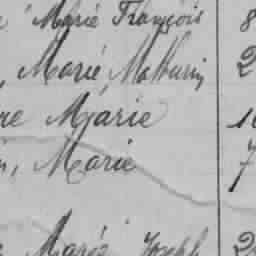 Marie François 8
, Marie, Mathurin 2
re Marie 10
n, Marie 7
Marie Joseph 2